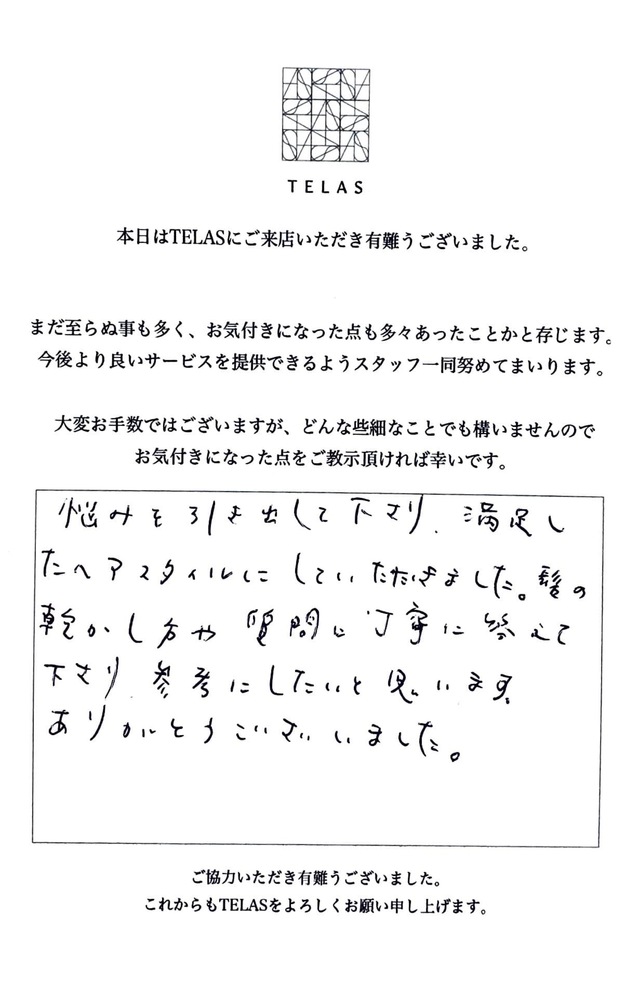 TELAS
本日はTELASにご来店いただき有難うございました。
まだ至らぬ事も多く、お気付きになった点も多々あったことかと存じます。
今後より良いサービスを提供できるようスタッフ一同努めてまいります。
大変お手数ではございますが、どんな些細なことでも構いませんので
お気付きになった点をご教示頂ければ幸いです。
悩みを引き出して下さり、満足し
たヘアスタイルにしていただきました。髪の
乾かし方や質問に丁寧に答えて
下さり、参考にしたいと思います。
ありがとうございました。
ご協力いただき有難うございました。
これからもTELASをよろしくお願い申し上げます。